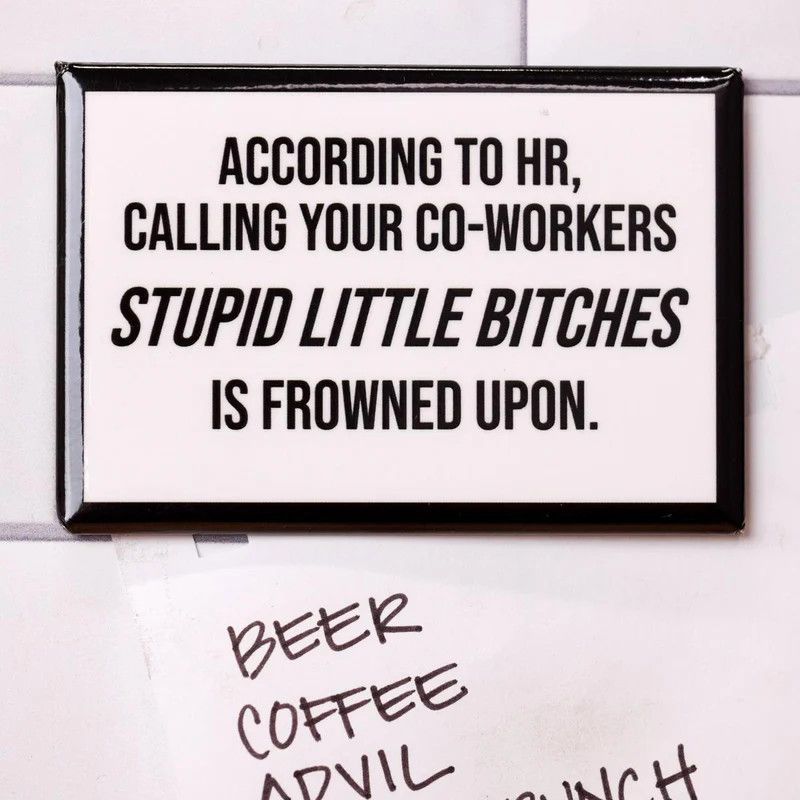 ACCORDING TO HR,
CALLING YOUR CO-WORKERS
STUPID LITTLE BITCHES
IS FROWNED UPON.
BEER
COFFEE
ADVIL